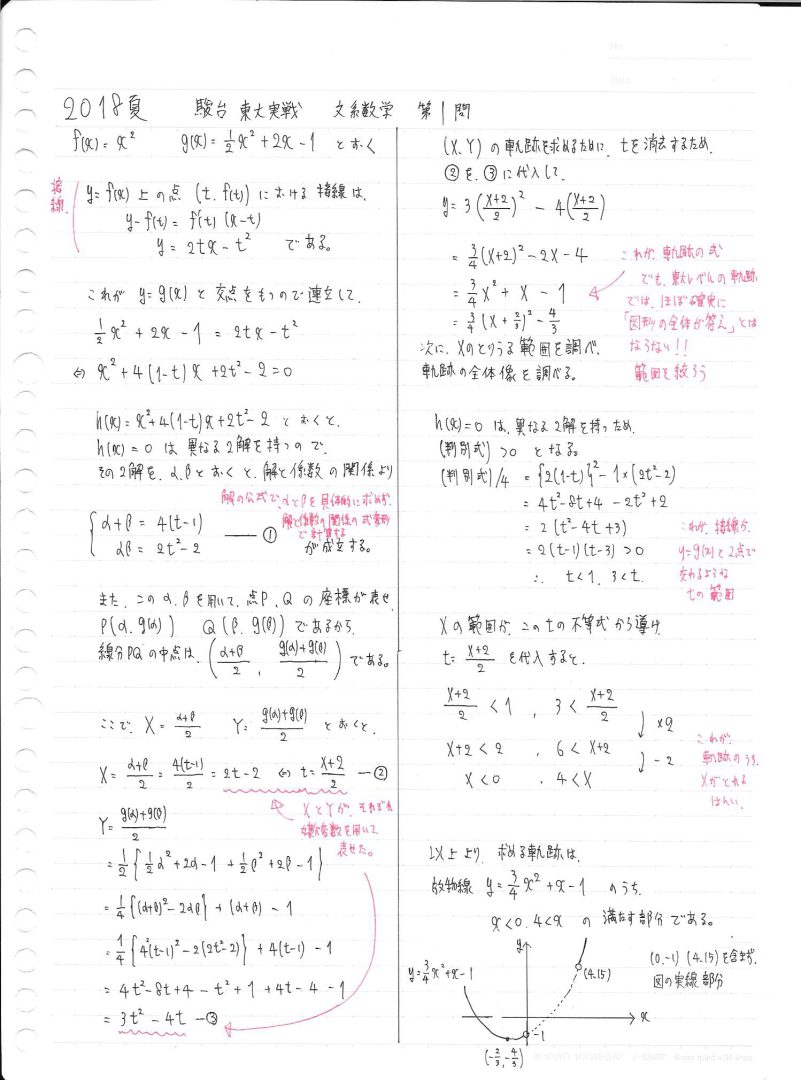 2018夏 駿台 東大実戦 文系数学 第1問
f(x) = x² g(x) = 1/2 x² + 2x - 1 とおく
接線
y = f(x) 上の点 (t, f(t)) における接線は、
y - f(t) = f'(t) (x - t)
y = 2tx - t² である。
これが y = g(x) と交点をもつので連立して、
1/2 x² + 2x - 1 = 2tx - t²
⇔ x² + 4(1-t)x + 2t² - 2 = 0
h(x) = x² + 4(1-t)x + 2t² - 2 とおくと、
h(x) = 0 は異なる2解を持つので、
その2解を、α、βとおくと、解と係数の関係より
解の公式で、αとβを具体的に求めず、
解と係数の関係の式変形
で計算する
{ α+β = 4(t-1)
αβ = 2t² - 2 ― ①
が成立する。
また、このα、βを用いて、点P、Qの座標が表せ
P(α, g(α)) Q(β, g(β)) であるから
線分PQの中点は、((α+β)/2, (g(α)+g(β))/2) である。
ここで、X = (α+β)/2 Y = (g(α)+g(β))/2 とおくと、
X = (α+β)/2 = 4(t-1)/2 = 2t - 2 ⇔ t = (X+2)/2 ― ②
XとYが、それぞれ
媒介変数を用いて
表せた。
Y = (g(α)+g(β))/2
= 1/2 {1/2 α² + 2α - 1 + 1/2 β² + 2β - 1}
= 1/4 {(α+β)² - 2αβ} + (α+β) - 1
= 1/4 {4²(t-1)² - 2(2t²-2)} + 4(t-1) - 1
= 4t² - 8t + 4 - t² + 1 + 4t - 4 - 1
= 3t² - 4t ― ③
(X, Y) の軌跡を求めるために、tを消去するため、
②を、③に代入して、
y = 3((X+2)/2)² - 4((X+2)/2)
= 3/4 (X+2)² - 2X - 4
= 3/4 X² + X - 1
= 3/4 (X + 2/3)² - 4/3
これが、軌跡の式
でも、東大レベルの軌跡
では、ほぼ確実に
「図形の全体が答え」とは
ならない!!
範囲を絞ろう
次に、Xのとりうる範囲を調べ、
軌跡の全体像を調べる。
h(x) = 0 は、異なる2解を持つため、
(判別式) > 0 となる。
(判別式)/4 = {2(1-t)}² - 1×(2t²-2)
= 4t² - 8t + 4 - 2t² + 2
= 2(t² - 4t + 3)
= 2(t-1)(t-3) > 0
∴ t < 1, 3 < t.
これが、接線が、
y = g(x) と2点で
交わるような
tの範囲
Xの範囲が、このtの不等式から導け
t = (X+2)/2 を代入すると、
(X+2)/2 < 1 , 3 < (X+2)/2
×2
X+2 < 2 , 6 < X+2
-2
X < 0 , 4 < X
これが、
軌跡のうち、
Xがとれる
はんい。
以上より、求める軌跡は、
放物線 y = 3/4 x² + x - 1 のうち、
x < 0, 4 < x の満たす部分である。
y
y = 3/4 x² + x - 1
(4, 15)
(0, -1) (4, 15) を含まず、
図の実線部分
x
-1
(-2/3, -4/3)